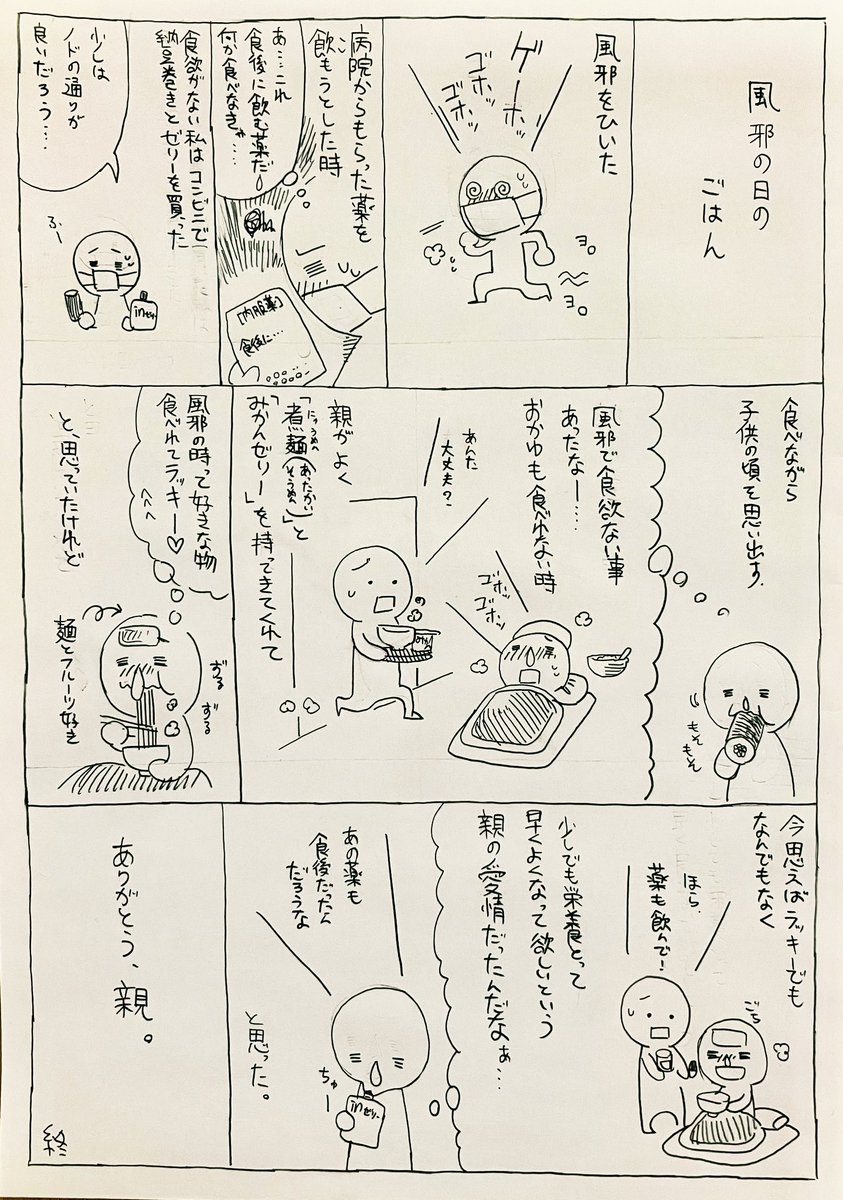 風邪の日の
ごはん
風邪をひいた
ゲーホッ
ゴホッ
ゴホッ
ヨロ
ヨロ
病院からもらった薬を
飲もうとした時
あ…これ
食後に飲む薬だ
何か食べなきゃ…
[内服薬]
食後に…
食欲がない私はコンビニで
納豆巻きとゼリーを買った
少しは
ノドの通りが
良いだろう…
ふー
inゼリー
食べながら
子供の頃を思い出す。
もそ
もそ
風邪で食欲ない事
あったなー…
おかゆも食べれない時
ゴホッ
ゴホッ
あんた
大丈夫?
親がよく
「煮麺(あったかいそうめん)」と
にゅうめん
「みかんゼリー」を持ってきてくれて
風邪の時って好きな物
食べれてラッキー♡
へへへ
と、思っていたけれど
ずる
ずる
麺とフルーツ好き
今思えばラッキーでも
なんでもなく
ほら、
薬も飲んで!
ごち
少しでも栄養とって
早くよくなって欲しいという
親の愛情だったんだなぁ…
あの薬も
食後だったん
だろうな
ちゅー
inゼリー
と思った。
ありがとう、親。
終